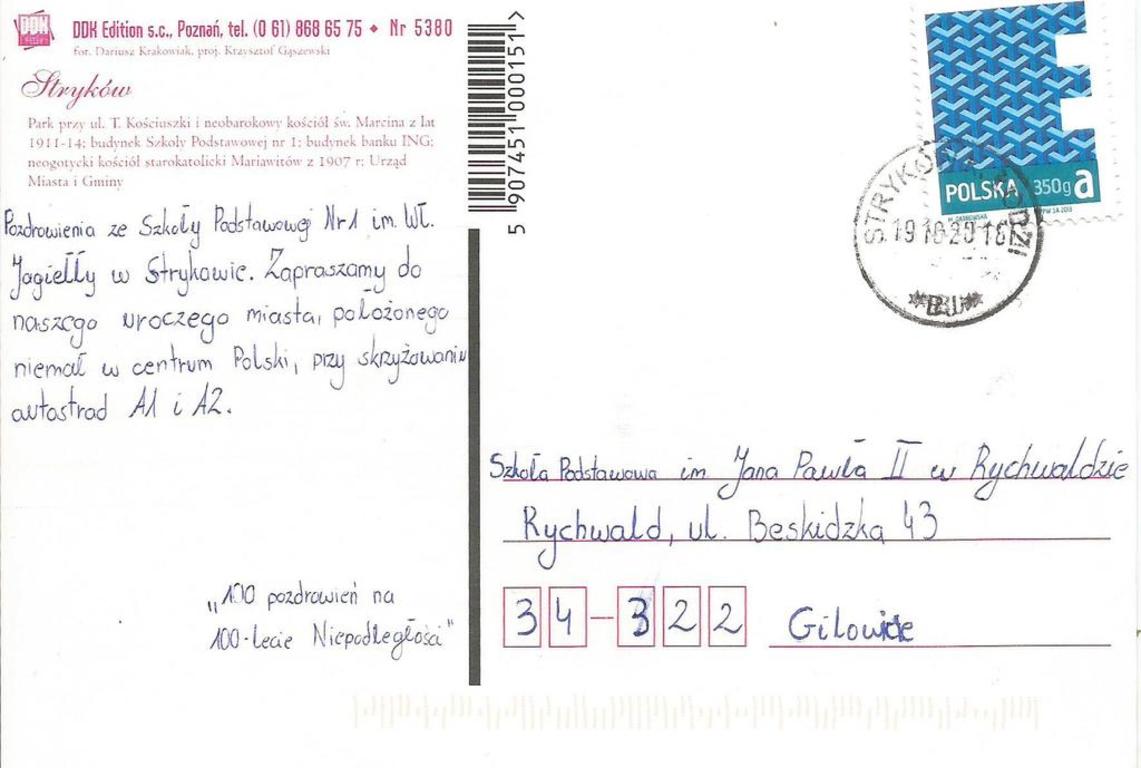 DDK Edition s.c., Poznań, tel. (0 61) 868 65 75 ♦ Nr 5380
fot. Dariusz Krakowiak, proj. Krzysztof Gąszewski
Stryków
Park przy ul. T. Kościuszki i neobarokowy kościół św. Marcina z lat
1911-14; budynek Szkoły Podstawowej nr 1; budynek banku ING;
neogotycki kościół starokatolicki Mariawitów z 1907 r; Urząd
Miasta i Gminy
Pozdrowienia ze Szkoły Podstawowej Nr 1 im. Wł.
Jagiełły w Strykowie. Zapraszamy do
naszego uroczego miasta, położonego
niemal w centrum Polski, przy skrzyżowaniu
autostrad A1 i A2.
„100 pozdrowień na
100-lecie Niepodległości"
5 907451 000151 >
POLSKA 350g a
STRYKÓW
19 10 2018
Szkoła Podstawowa im. Jana Pawła II w Rychwałdzie
Rychwałd, ul. Beskidzka 43
34-322 Gilowice